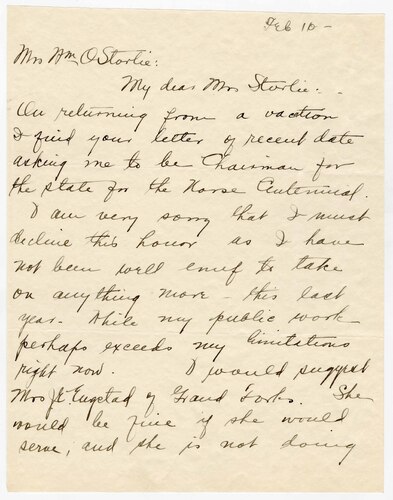 Feb 10-
Mrs Wm O Storlie:
My dear Mrs Storlie:-
On returning from a vaction
I find your letter of recent date
asking me to be Chairman for
the state for the Norse Centennial.
I am very sorry that I must
decline this honor as I have
not been well enuf to take
on anything more - this last
year. While my public work
perhaps exceeds my limitations
right now. I would suggest
Mrs J.E. Engstad of Grand Forks. She
would be fine if she would
serve, and she is not doing